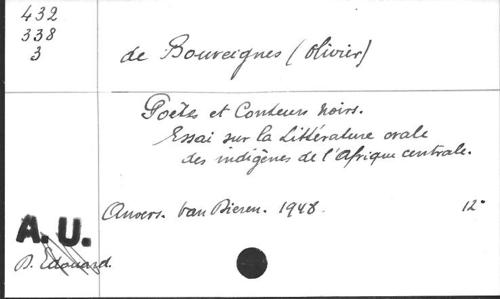 432
338
3
de Bouveignes (Olivier)
Poètes et Conteurs Noirs.
Essai sur la Littérature orale
des indigènes de l'Afrique centrale.
Anvers. Van Dieren. 1948. 12°
A.U.
B. Edouard.